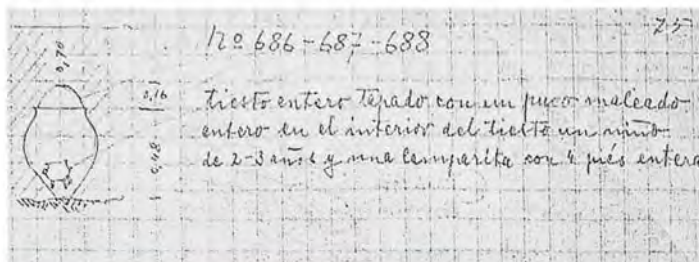 25
Nº 686-687-688
0,70
0,16
tiesto entero tapado con un puco maleado
entero en el interior del tiesto un niño
0,48
de 2-3 años y una lamparita con 4 piés entera